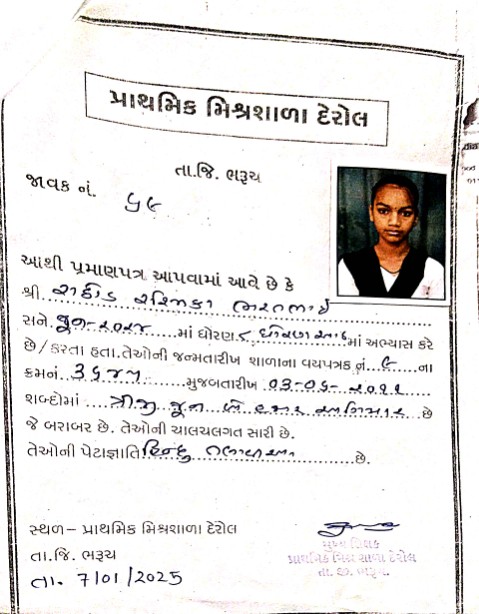 પ્રાથમિક મિશ્રશાળા દેરોલ
તા.જિ. ભરૂચ
જાવક નં. ૬૯
આથી પ્રમાણપત્ર આપવામાં આવે છે કે
શ્રી રાઠોડ
સને. જૂન-૨૦૨૪ માં ધોરણ ૮ માં અભ્યાસ કરે
છે / કરતા હતા. તેઓની જન્મતારીખ શાળાના વયપત્રક નં. ૯ ના
ક્રમનં. ૩૬૪૫ મુજબતારીખ ૦૩-૦૬-૨૦૧૧
શબ્દોમાં ત્રીજી જૂન બે હજાર અગિયાર છે
જે બરાબર છે. તેઓની ચાલચલગત સારી છે.
તેઓની પેટાજ્ઞાતિ હિન્દુ છે.
સ્થળ– પ્રાથમિક મિશ્રશાળા દેરોલ
તા.જિ. ભરૂચ
તા. 7/01/2025
મુખ્ય શિક્ષક
પ્રાથમિક મિશ્ર શાળા દેરોલ
તા. જી. ભરૂચ.